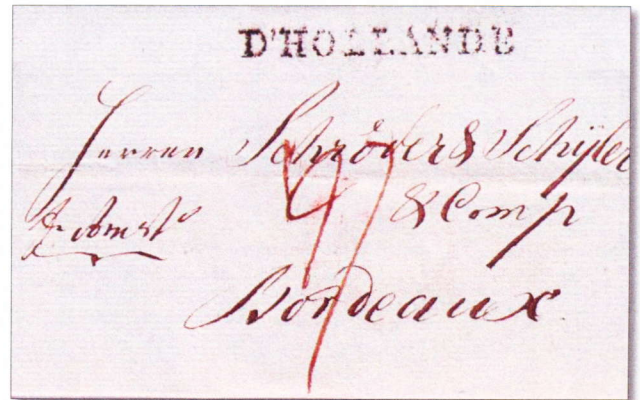 D'HOLLANDE
Herren Schröder & Schÿler
& Comp
Bordeaux